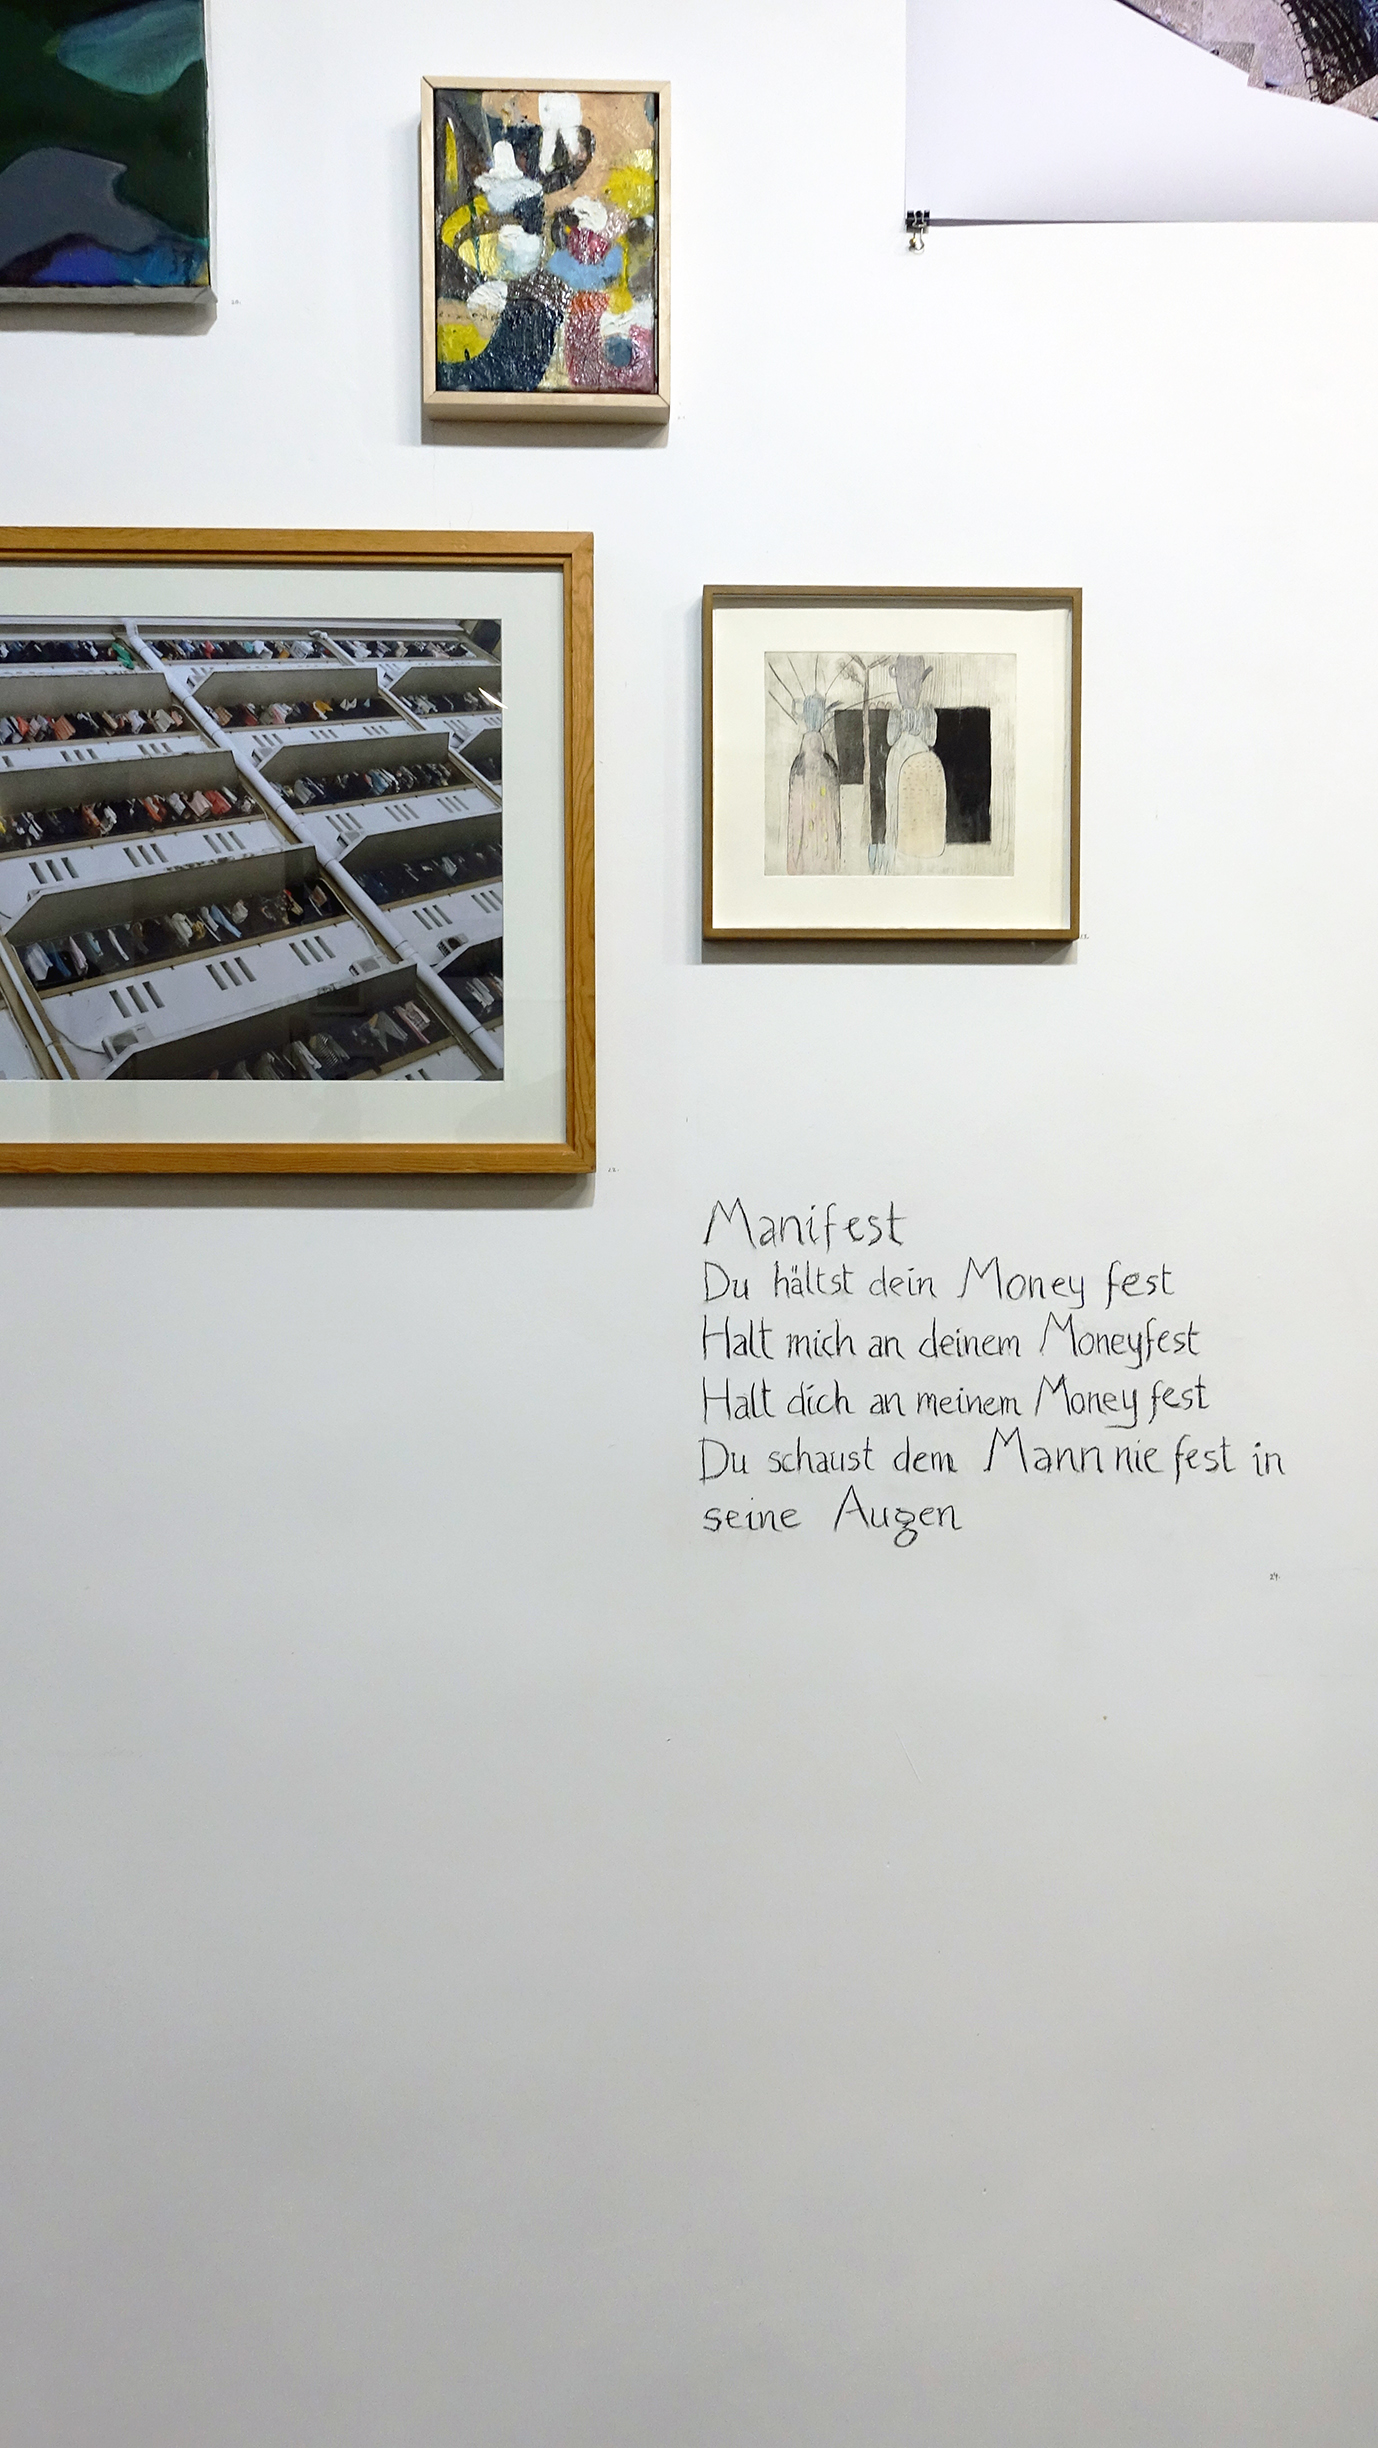 20.
22.
23.
Manifest
Du hältst dein Money fest
Halt mich an deinem Moneyfest
Halt dich an meinem Money fest
Du schaust dem Mann nie fest in
seine Augen
24.